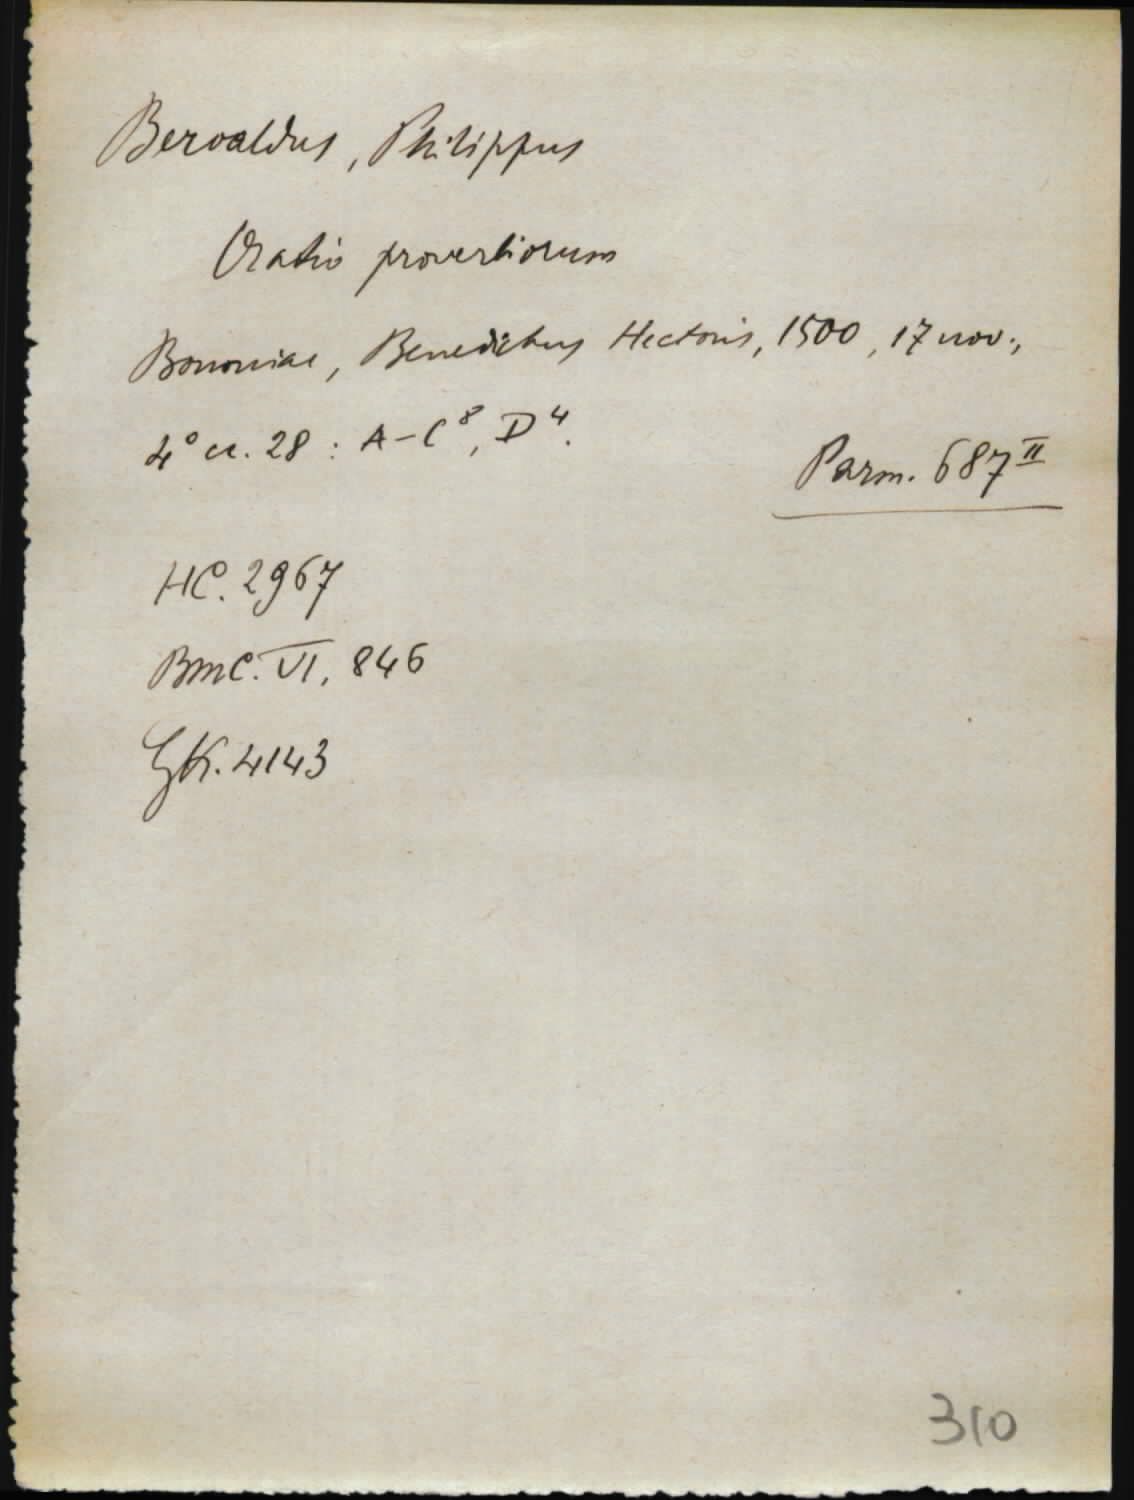 Beroaldus, Philippus
Oratio proverbiorum
Bononiae, Benedictus Hectoris, 1500, 17 nov.,
4° cc. 28 : A-C⁸, D⁴.
Parm. 687 II
HC. 2967
BMC. VI, 846
GK. 4143
310